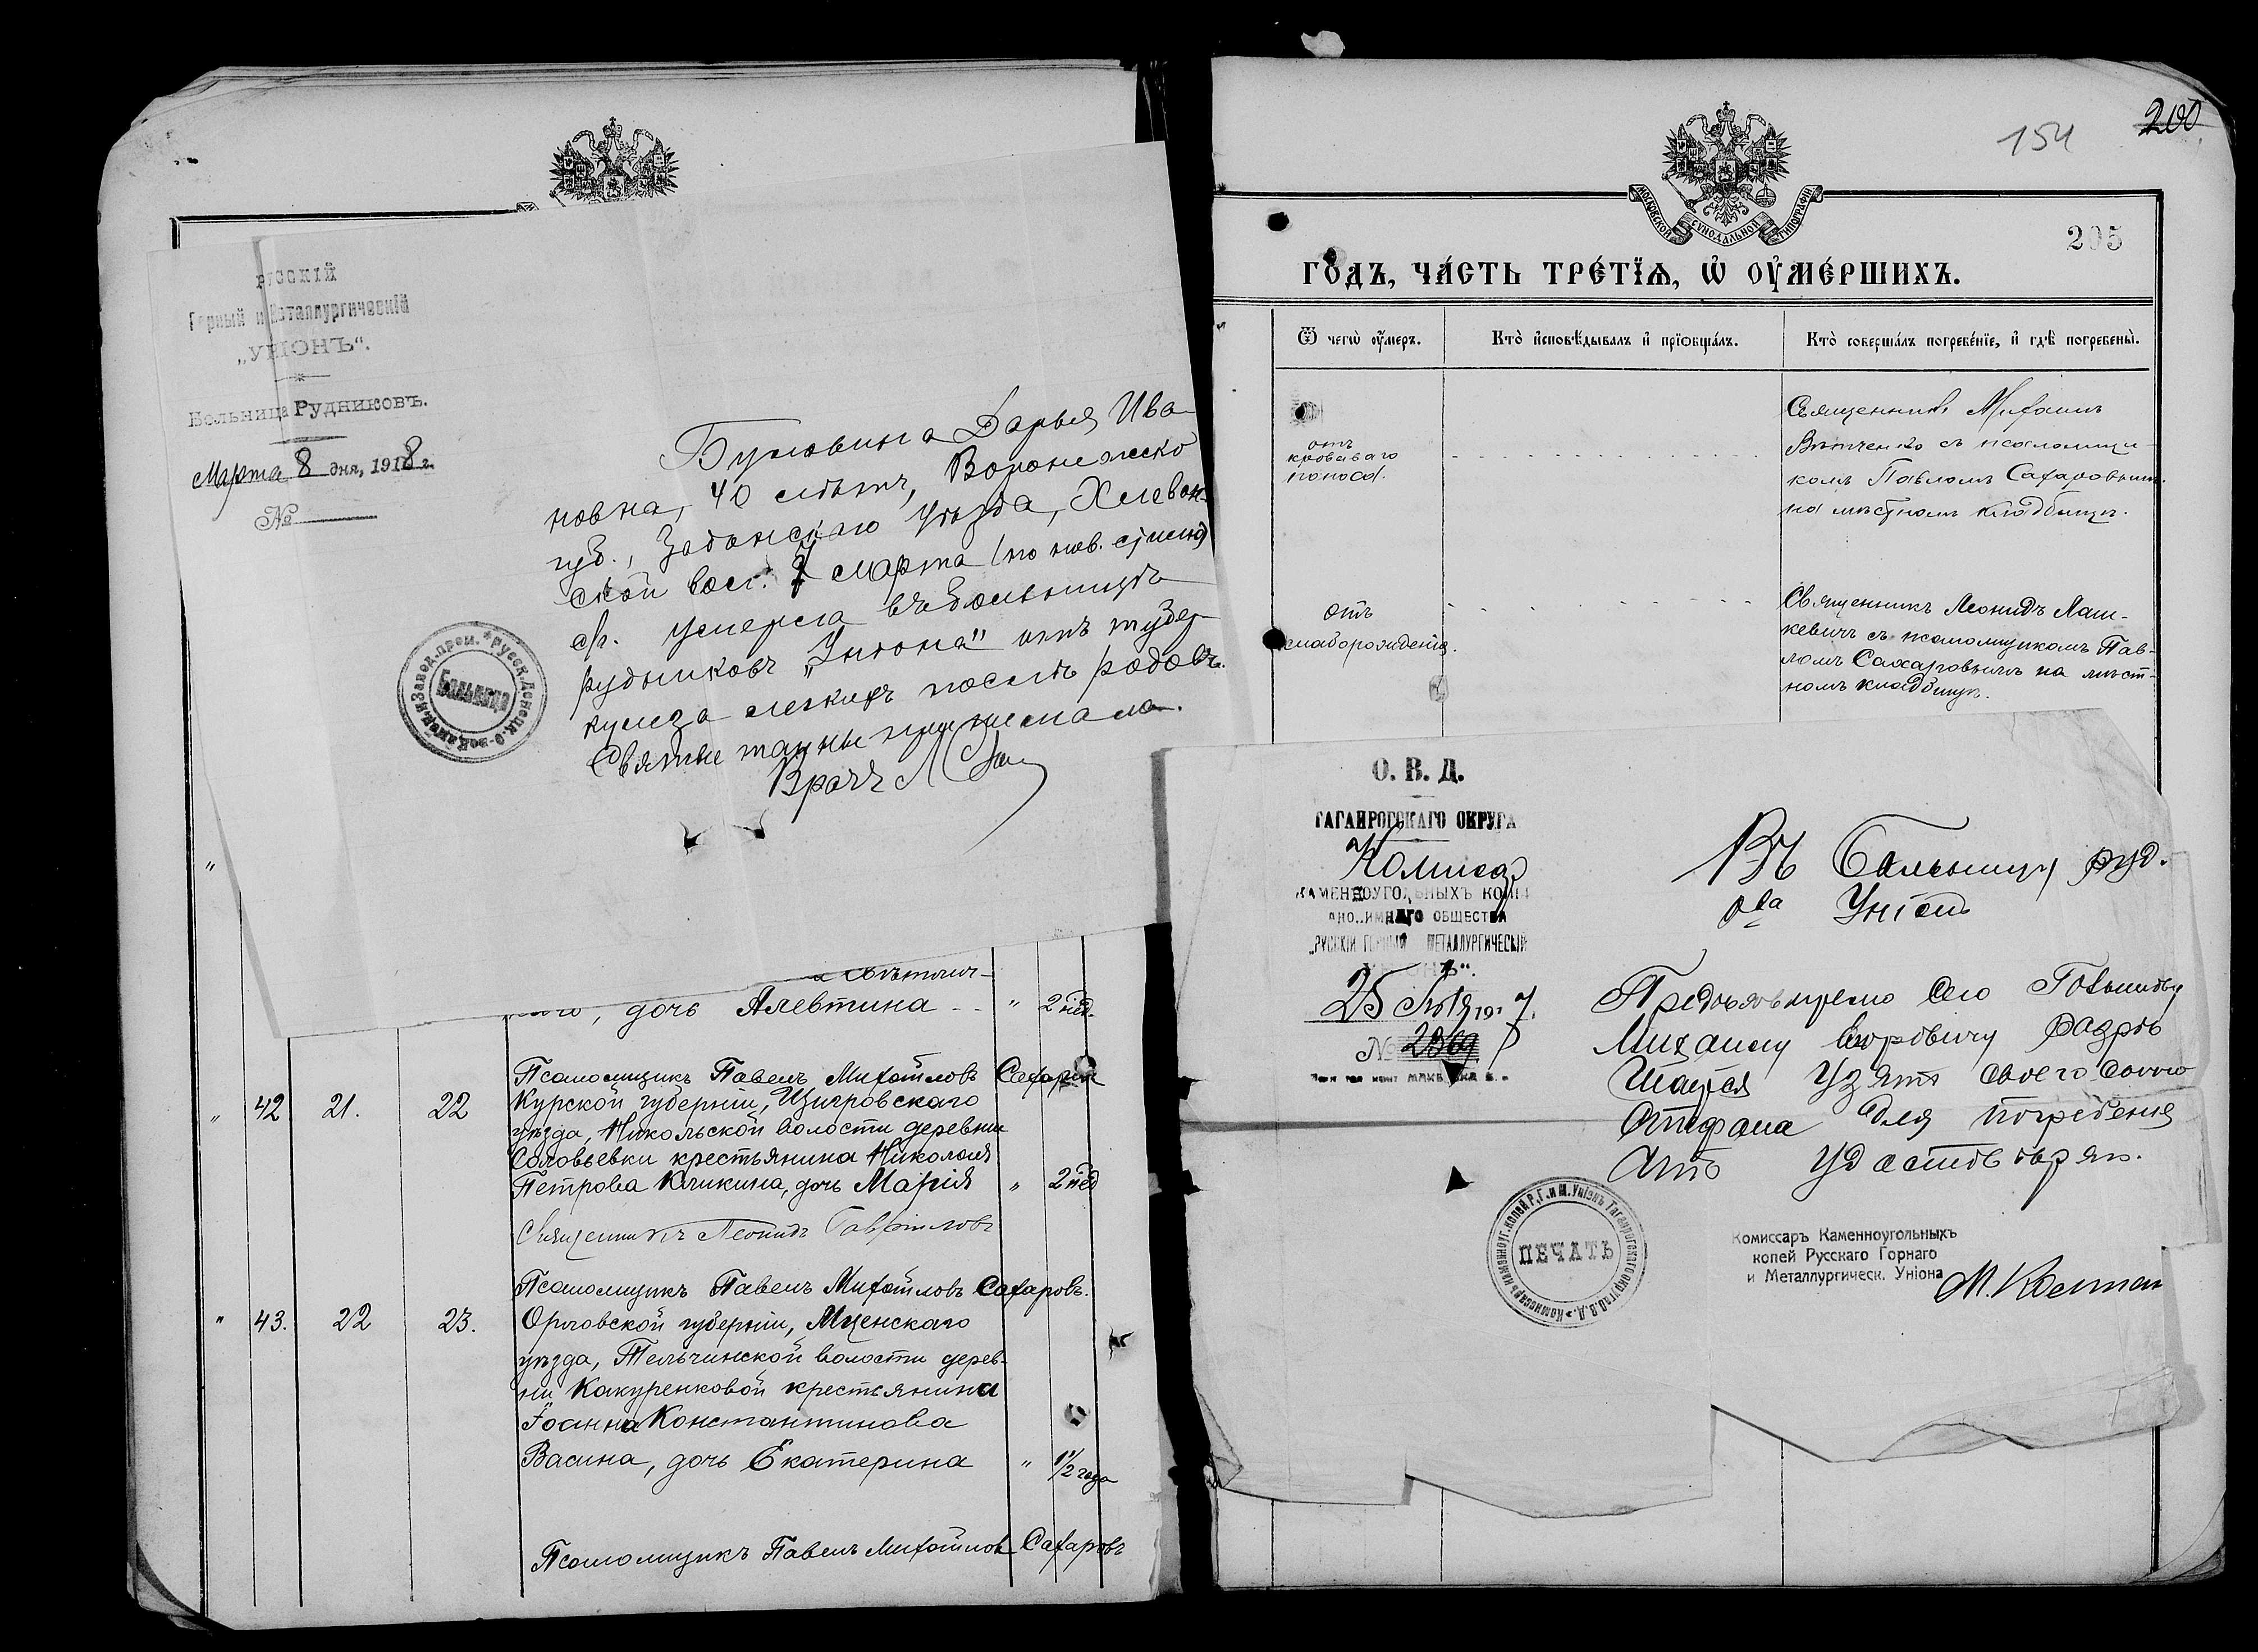 РУССКІЙ
Горный и Металлургическій
„УНІОНЪ“.
Больница Рудниковъ.
Марта 8 дня, 1918 г.
№
Дарья Ива-
новна, 40 лѣтъ, Воронежско
губ., Задонскаго уѣзда, Хлевен-
ской вол. 7 марта (по нов. стилю)
с/г. умерла въ больницѣ
рудниковъ „Уніона“ отъ тубер-
кулеза легкихъ послѣ родовъ.
Святые тайны принимала.
Врачъ
Больница
„
дочь Алевтина - - „ 2 нед.
Псаломщикъ Павелъ Михайловъ Сахаров
„ 42 21. 22 Курской губерніи, Щигровскаго
уѣзда, Никольской волости деревни
Соловьевки крестьянина Николая
Петрова Кликина, дочь Марія „ 2 нед
Священникъ Леонидъ Гаврииловъ
Псаломщикъ Павелъ Михайловъ Сахаровъ.
„ 43. 22 23. Орловской губерніи, Мценскаго
уѣзда, Тельчинской волости дерев-
ни Какуренковой крестьянина
Іоанна Константинова
Васина, дочь Екатерина „ 1 1/2 года
Псаломщикъ Павелъ Михайловъ Сахаровъ
154 200
МОСКОВСКОЙ СѴНОДАЛЬНОЙ ТИПОГРАФІИ
205
ГОДЪ, ЧА́СТЬ ТРЕ́ТЇѦ, Ѡ҆ ОУ҆МЕ́РШИХЪ.
Ѿ чегѡ̀ оу҆́меръ. Кто̀ и҆сповѣ́дывалъ и҆ прїѡбща́лъ. Кто̀ соверша́лъ погребе́нїе, и҆ гдѣ̀ погребены̀.
отъ
кроваваго
поноса.
Священникъ Михаилъ
съ псаломщи-
комъ Павломъ Сахаровымъ.
на мѣстномъ кладбищѣ.
отъ
слаборожденія.
Священникъ Леонидъ
съ псаломщикомъ Пав-
ломъ Сахаровымъ на мѣст-
номъ кладбищѣ.
О. В. Д.
ТАГАНРОГСКАГО ОКРУГА
Комисар
КАМЕННОУГОЛЬНЫХЪ КОПЕЙ
АНОНИМНАГО ОБЩЕСТВА
„РУССКІЙ ГОРНЫЙ МЕТАЛЛУРГИЧЕСКІЙ
УНІОНЪ“.
25 1917.
№ 2369
Въ Больницу руд.
о-ва Уніонъ
Предъявителю сего
Михаилу разрѣ
шается узять своего
для погребенія
что удостовѣряю.
ПЕЧАТЬ
Комиссаръ Каменноугольныхъ
копей Русскаго Горнаго
и Металлургическ. Уніона